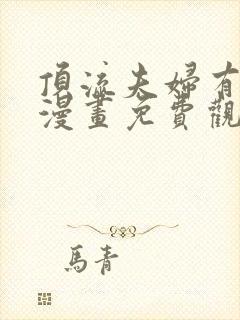 頂流夫婦有
漫畫免費觀
馬青